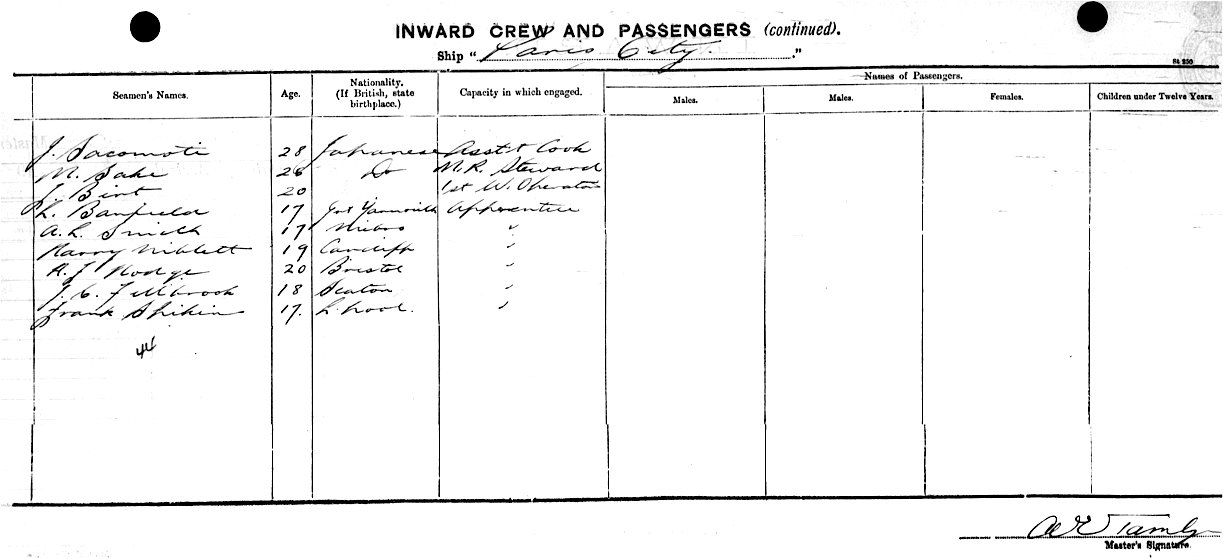 INWARD CREW AND PASSENGERS (continued).
Ship "Paris City."
St 250
Seamen's Names. Age. Nationality. (If British, state birthplace.) Capacity in which engaged. Names of Passengers.
Males. Males. Females. Children under Twelve Years.
J. Sacomoti 28 Japanese Asst Cook
M. Sake 26 Do M.R. Steward
J. Bint 20 1st W. Operator
L. Banfield 17 Gt Yarmouth Apprentice
A. L. Smith 17 "
Harry Niblett 19 Cardiff "
A. J. Hodge 20 Bristol "
J. C. Fillbrook 18 Seaton "
Frank Shikin 17. L.pool. "
44
Master's Signature.